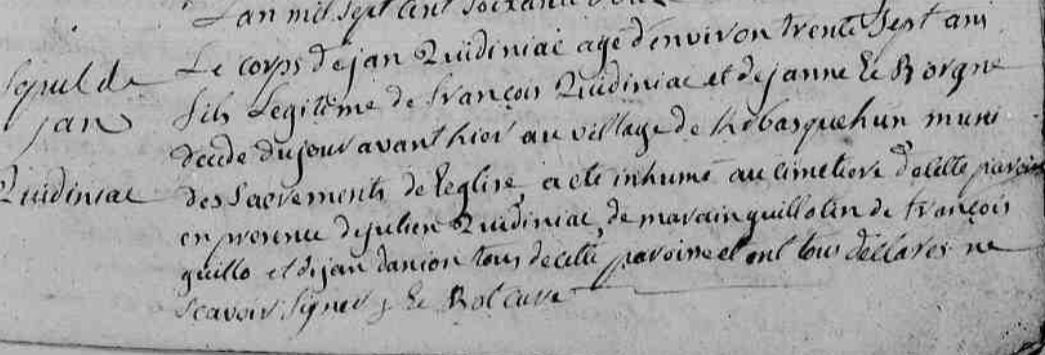 L'an mil sept cent soixante
Le corps de jan Quidiniac age d'environ trente sept ans
sepul de
jan
Quidiniac
fils Legitême de françois Quidiniac et de janne Le Borgne
décédé du jour avant hier au village de muni
des sacrements de l'eglise a eté inhumé au cimetiere de cette paroisse
en presence de julien Quidiniac, de marc guillotin de françois
guillo et de jan danion tous de cette paroisse et ont tous déclarés ne
scavoir signer Le Rol curé